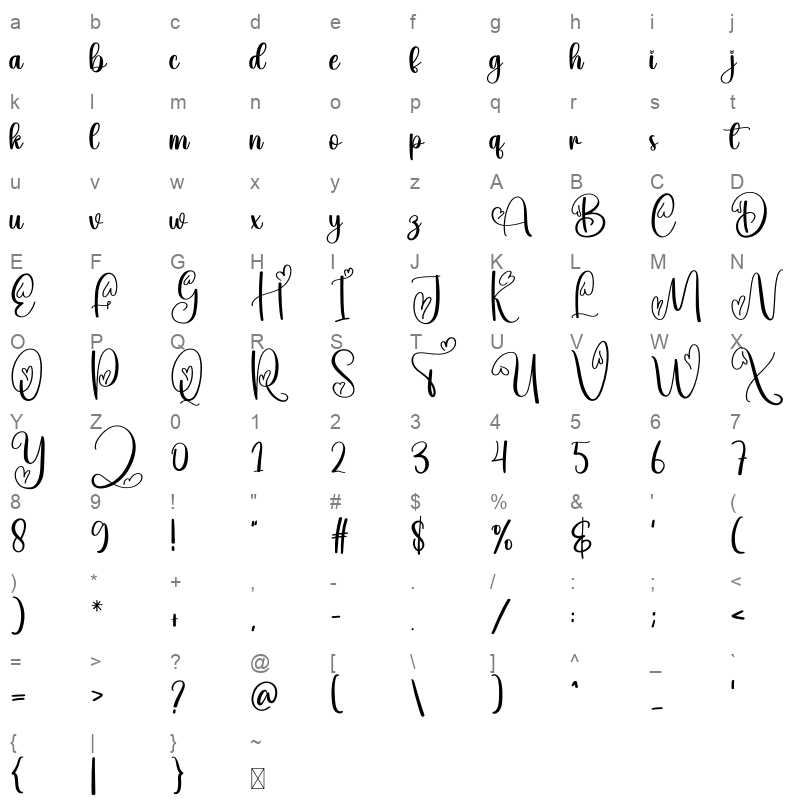 a b c d e f g h i j
a b c d e f g h i j
k l m n o p q r s t
k l m n o p q r s t
u v w x y z A B C D
u v w x y z A B C D
E F G H I J K L M N
E F G H I J K L M N
O P Q R S T U V W X
O P Q R S T U V W X
Y Z 0 1 2 3 4 5 6 7
Y Z 0 1 2 3 4 5 6 7
8 9 ! " # $ % & ' (
8 9 ! " # $ % & ' (
) * + , - . / : ; <
) * + , - . / : ; <
= > ? @ [ \ ] ^ _ `
= > ? @ ( \ ) ^ _ '
{ | } ~
{ | }